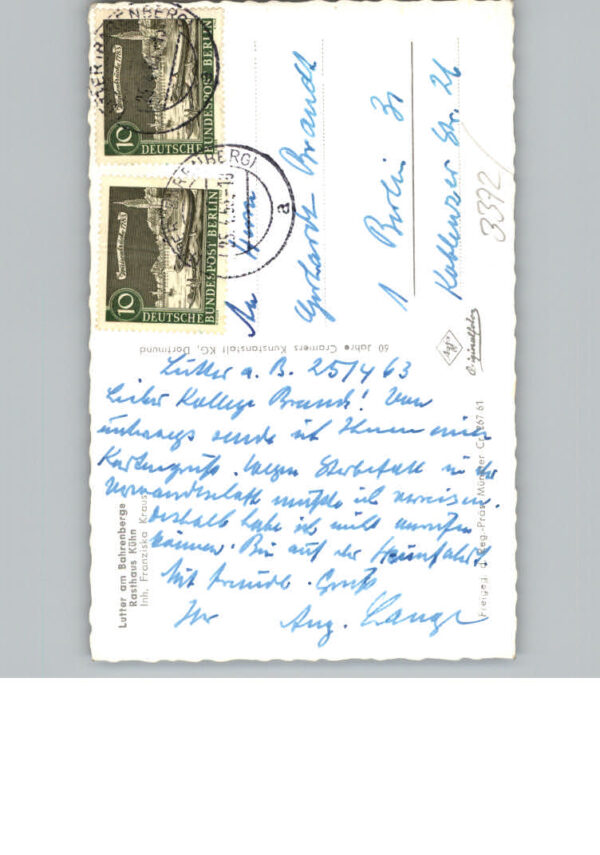 Lutter a. B. 25/4 63
Lieber Kollege Brandt! Von
unterwegs sende ich Ihnen einen
Kartengruß. Wegen Sterbefall in der
Verwandschaft mußte ich verreisen.
deshalb habe ich nicht anrufen
können. Bin auf der Heimfahrt
Mit freundl. Gruß
Ihr Aug. Lange
An Herrn
Gerhardt Brandt
1 Berlin 31
Koblenzer Str. 26
3392
Lutter am Bahrenberge
Rasthaus Kühn
Inh. Franziska Kraus
60 Jahre Cramers Kunstanstalt KG, Dortmund
Originalfoto
Freigeg. d. Reg.-Präs. Münster
10
DEUTSCHE
BUNDESPOST BERLIN
10
DEUTSCHE
BUNDESPOST BERLIN
a